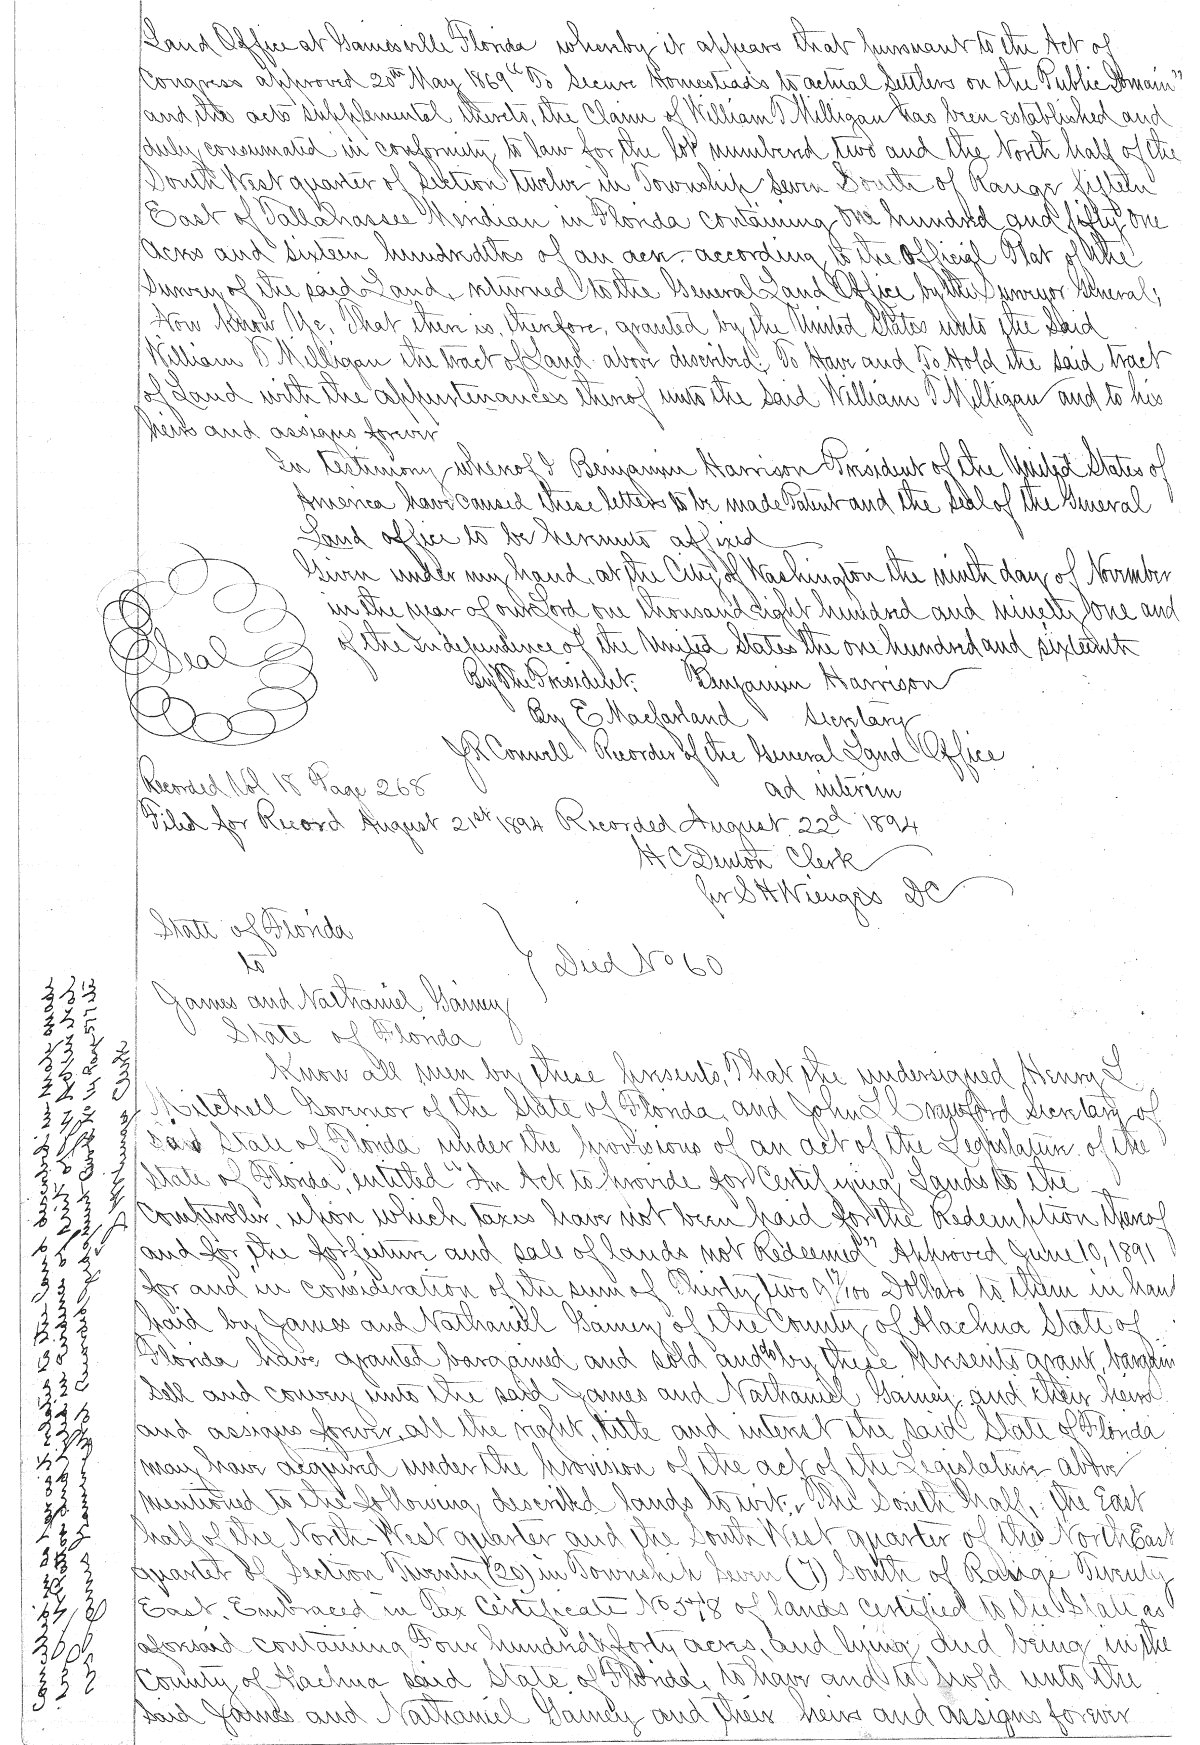 Land Office at Gainesville Florida whereby it appears that pursuant to the Act of
Congress approved 20th May 1869 "To Secure Homesteads to actual Settlers on the Public Domain"
and the acts supplemental thereto, the Claim of William T Milligan has been established and
duly consumated in conformity to law for the lot numbered two and the North half of the
South West quarter of Section twelve in Township seven South of Range fifteen
East of Tallahassee Meridian in Florida containing one hundred and fifty one
Acres and sixteen hundredths of an acre according to the Official Plat of the
Survey of the said Land, returned to the General Land Office by the Surveyor General;
Now Know Ye, That there is, therefore, granted by the United States unto the Said
William T Milligan the tract of Land above described: To Have and To Hold the said tract
of Land with the appurtenances thereof unto the said William T Milligan and to his
heirs and assigns forever
In testimony whereof I Benjamin Harrison President of the United States of
America have caused these letters to be made Patent and the Seal of the General
Land office to be hereunto affixed
Given under my hand, at the City of Washington the ninth day of November
in the year of our Lord one thousand eight hundred and ninety one and
of the Independence of the United States the one hundred and sixteenth
Seal
By the President: Benjamin Harrison
By E Macfarland Secretary
J R Conwell Recorder of the General Land Office
ad interim
Recorded Vol 18 Page 268
Filed for Record August 21st 1894 Recorded August 22d 1894
H C Denton Clerk
per S H Wienges DC
State of Florida
to
James and Nathaniel Gainey
Deed No 60
State of Florida
Know all men by these presents, That the undersigned Henry L
Mitchell Governor of the State of Florida, and John L Crawford Secretary of
said State of Florida under the provisions of an act of the Legislature of the
State of Florida, entitled "An Act to provide for Certifying Lands to the
Comptroller, upon which taxes have not been paid for the Redemption thereof
and for the forfeiture and sale of lands not Redeemed" Approved June 10, 1891
for and in consideration of the sum of Thirty two & /100 Dollars to them in hand
paid by James and Nathaniell Gainey of the County of Alachua State of
Florida have granted bargained and sold and do by these presents grant, bargain
sell and convey unto the said James and Nathaniel Gainey, and their heirs
and assigns forever, all the right, title and interest the said State of Florida
may have acquired under the provision of the act of the Legislature above
mentioned to the following described lands to wit: The South half, the East
half of the North-West quarter and the South West quarter of the North East
quarter of Section Twenty (20) in Township Seven (7) South of Range Twenty
East, Embraced in Tax Certificate No 578 of lands certified to the State as
aforesaid containing Four hundred & forty acres, and lying and being in the
County of Alachua said State of Florida, to have and to hold unto the
Said James and Nathaniel Gainey and their heirs and assigns forever